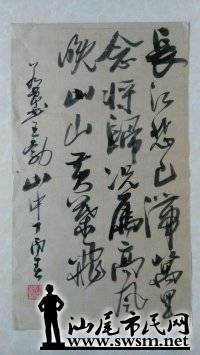 長江悲已滯萬里
念將歸況屬高風
晚山山黃葉飛
王勃山中
汕尾市民网
www.swsm.net